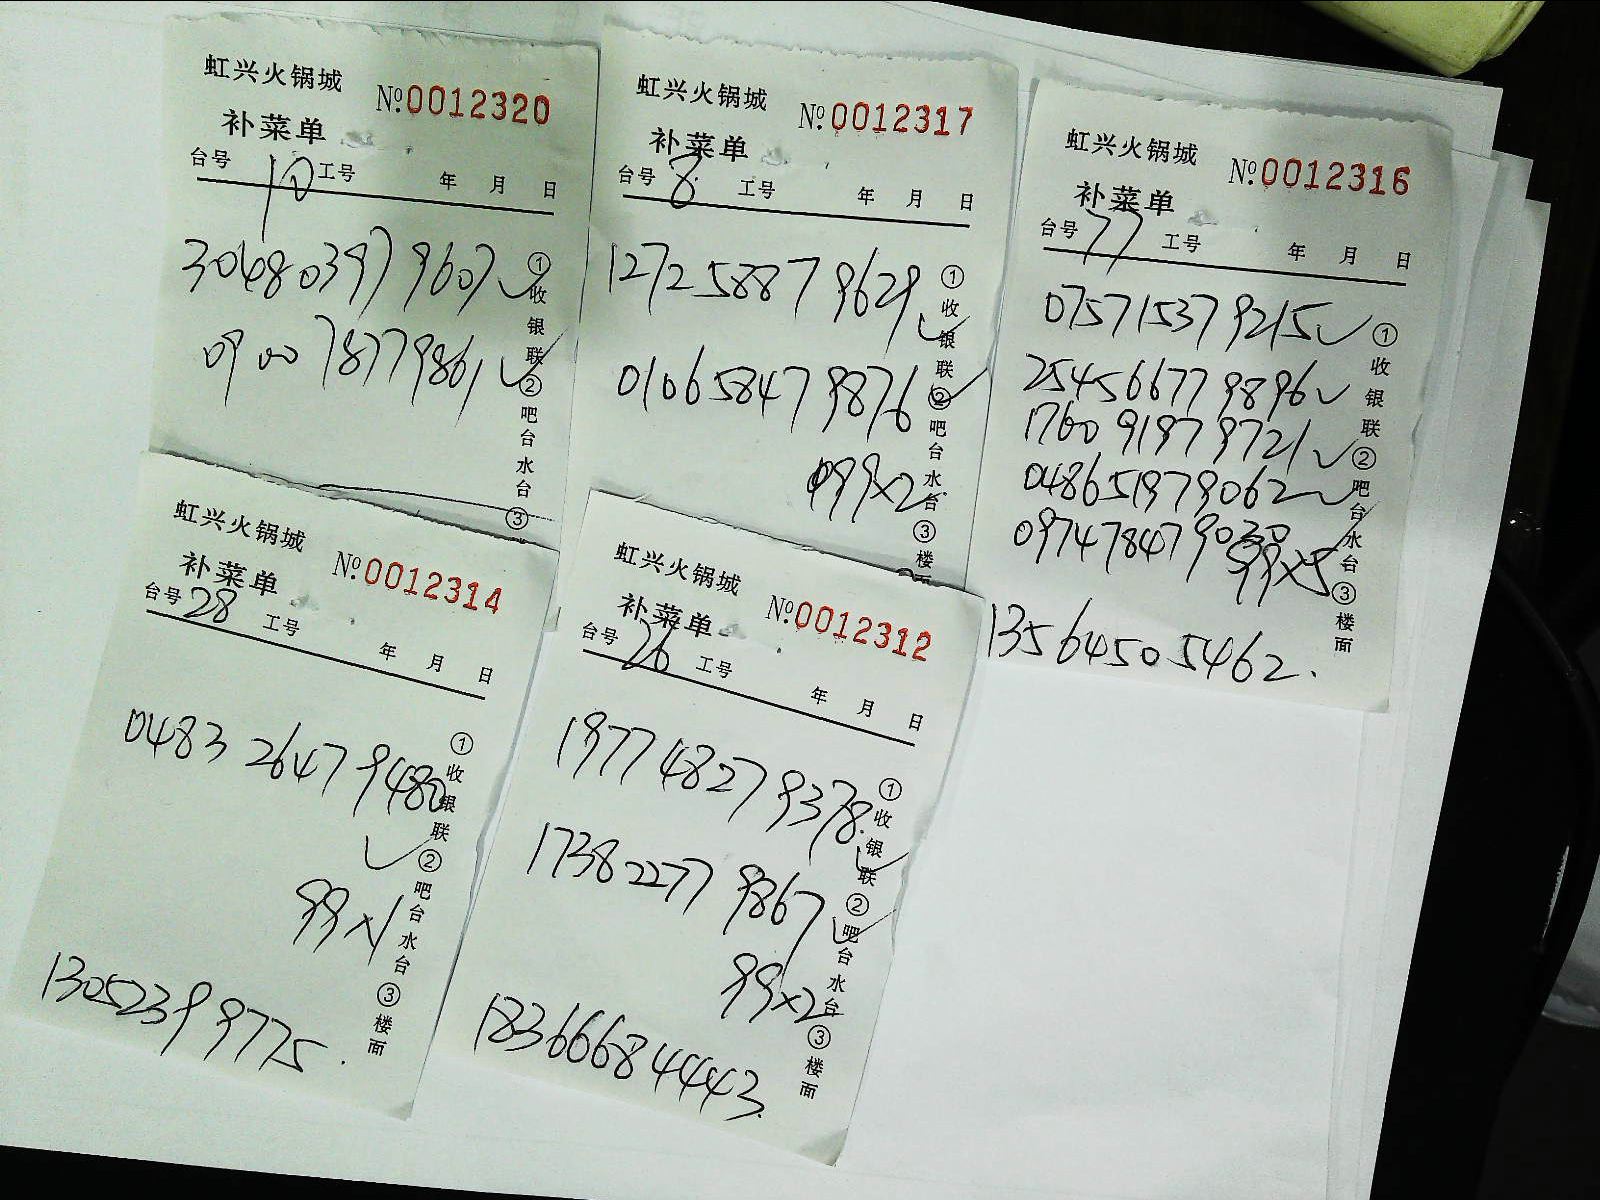 虹兴火锅城
№0012320
补菜单
台号 10 工号 年 月 日
304803979607
090078779861
①收银联②吧台水台③
虹兴火锅城
№0012317
补菜单
台号 8 工号 年 月 日
127258879629
010658479876
99×2
①收银联②吧台水台③楼面
虹兴火锅城
№0012316
补菜单
台号 77 工号 年 月 日
075715379215
254566779896
176091979721
048651979062
0997478479030
99×5
13564505462.
①收银联②吧台水台③楼面
虹兴火锅城
№0012314
补菜单
台号 28 工号 年 月 日
048326479480
99×1
13052399775.
①收银联②吧台水台③楼面
虹兴火锅城
№0012312
补菜单
台号 26 工号 年 月 日
197748279378.
173822779867
99×2
18366684443.
①收银联②吧台水台③楼面